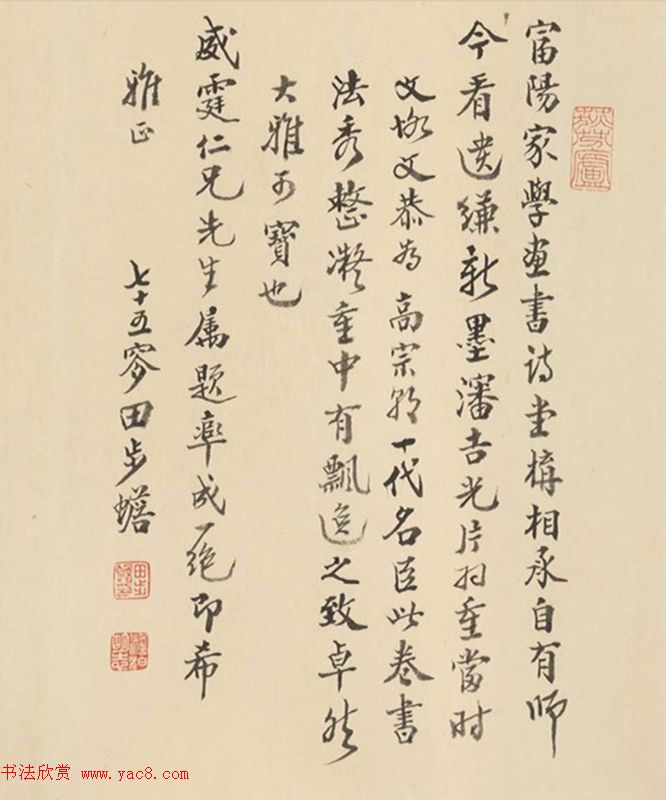 富陽家學画書詩堂構相承自有師
今看遺縑新墨瀋吉光片羽重當时
文恪文恭为高宗朝一代名臣此卷書
法秀整凝重中有飄逸之致卓然
大雅可寳也
威霆仁兄先生属题率成一绝即希
雅正
七十五叟田步蟾
书法欣赏 www.yac8.com